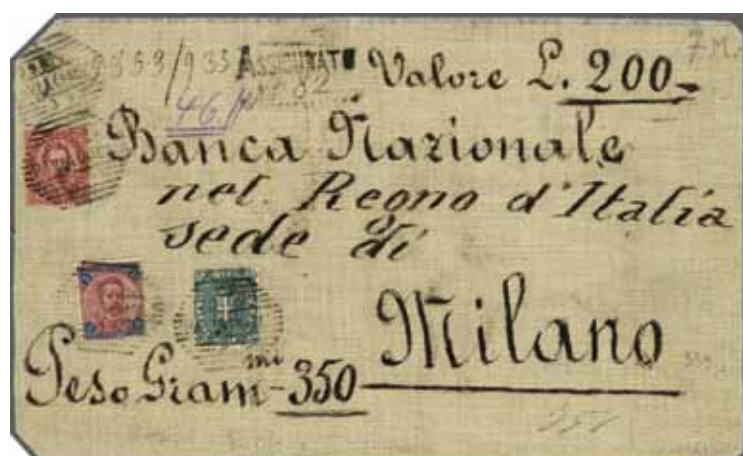 ASSICURATO
Valore L. 200-
7 M.
46
Banca Nazionale
nel Regno d'Italia
sede di
Milano
Peso Gram^mi - 350